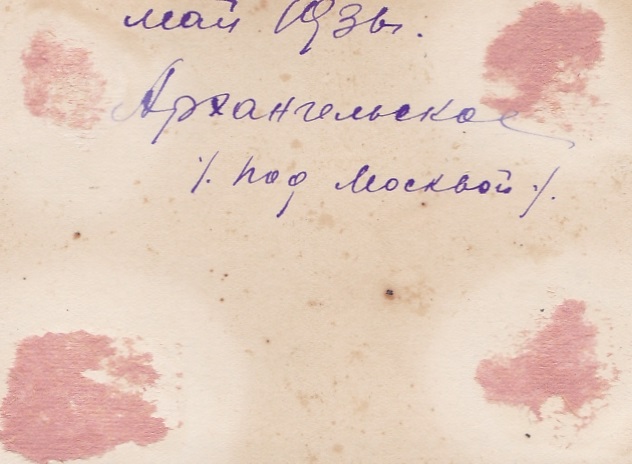 май 1936г.
Архангельское
/. под Москвой ./.